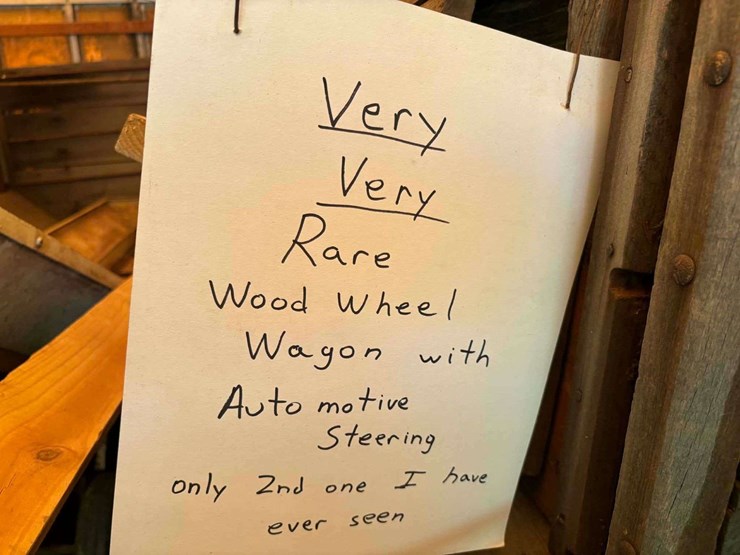 Very
Very
Rare
Wood Wheel
Wagon with
Auto motive
Steering
only 2nd one I have
ever seen